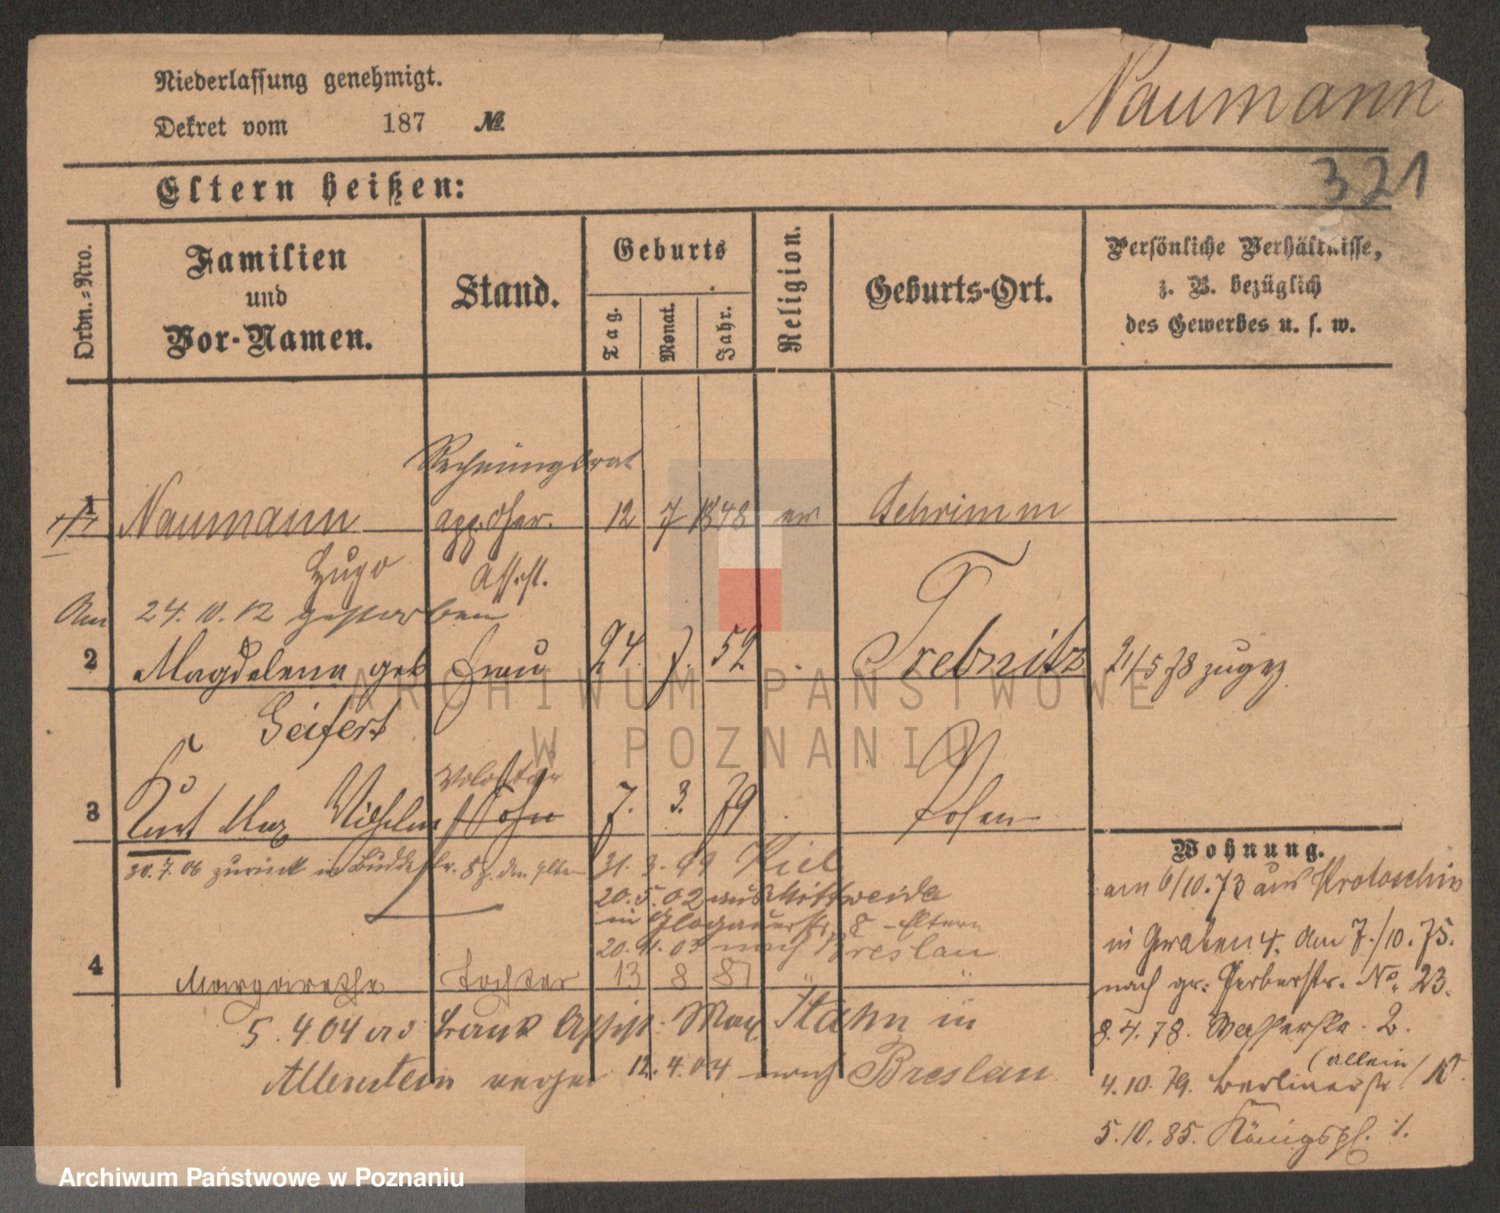 Niederlassung genehmigt.
Naumann
Dekret vom 187 №
321
Eltern heißen:
Ordn.-Nro.
Familien und Vor-Namen.
Stand.
Geburts
Tag.
Monat.
Jahr.
Religion.
Geburts-Ort.
Persönliche Verhältnisse,
z. B. bezüglich
des Gewerbes u. s. w.
Rechnungsrat
1 Naumann 12 7 1848 ev Schrimm
Hugo Assist.
Am 24.10.12 gestorben
2 Magdalena geb Frau 24. 7. 52 Trebnitz 21/5 78 zugez
Seifert
Volontär
3 Kurt Max Wilhelm Sohn 7. 3. 79 Posen
Wohnung.
30.7.06 zurück in Buddestr. 8 b. den Eltern 31. 3. 99 Kiel
am 6/10.73 aus Krotoschin
20.5.02 aus Mittweida
in Glogauerstr. 8 - Eltern
in Graben 4. Am 7./10.75.
nach Breslau
4 Margarethe Tochter 13 8 81 " "
nach gr. Gerberstr. No. 23.
5.4.04 Assist. Max Hahn in
8.4.78. Wasserstr. 2.
Allenstein 12.4.04 nach Breslau
(allein)
4.10.79. Berlinerstr
5.10.85. Königspl. 1.
ARCHIWUM PAŃSTWOWE
W POZNANIU
Archiwum Państwowe w Poznaniu